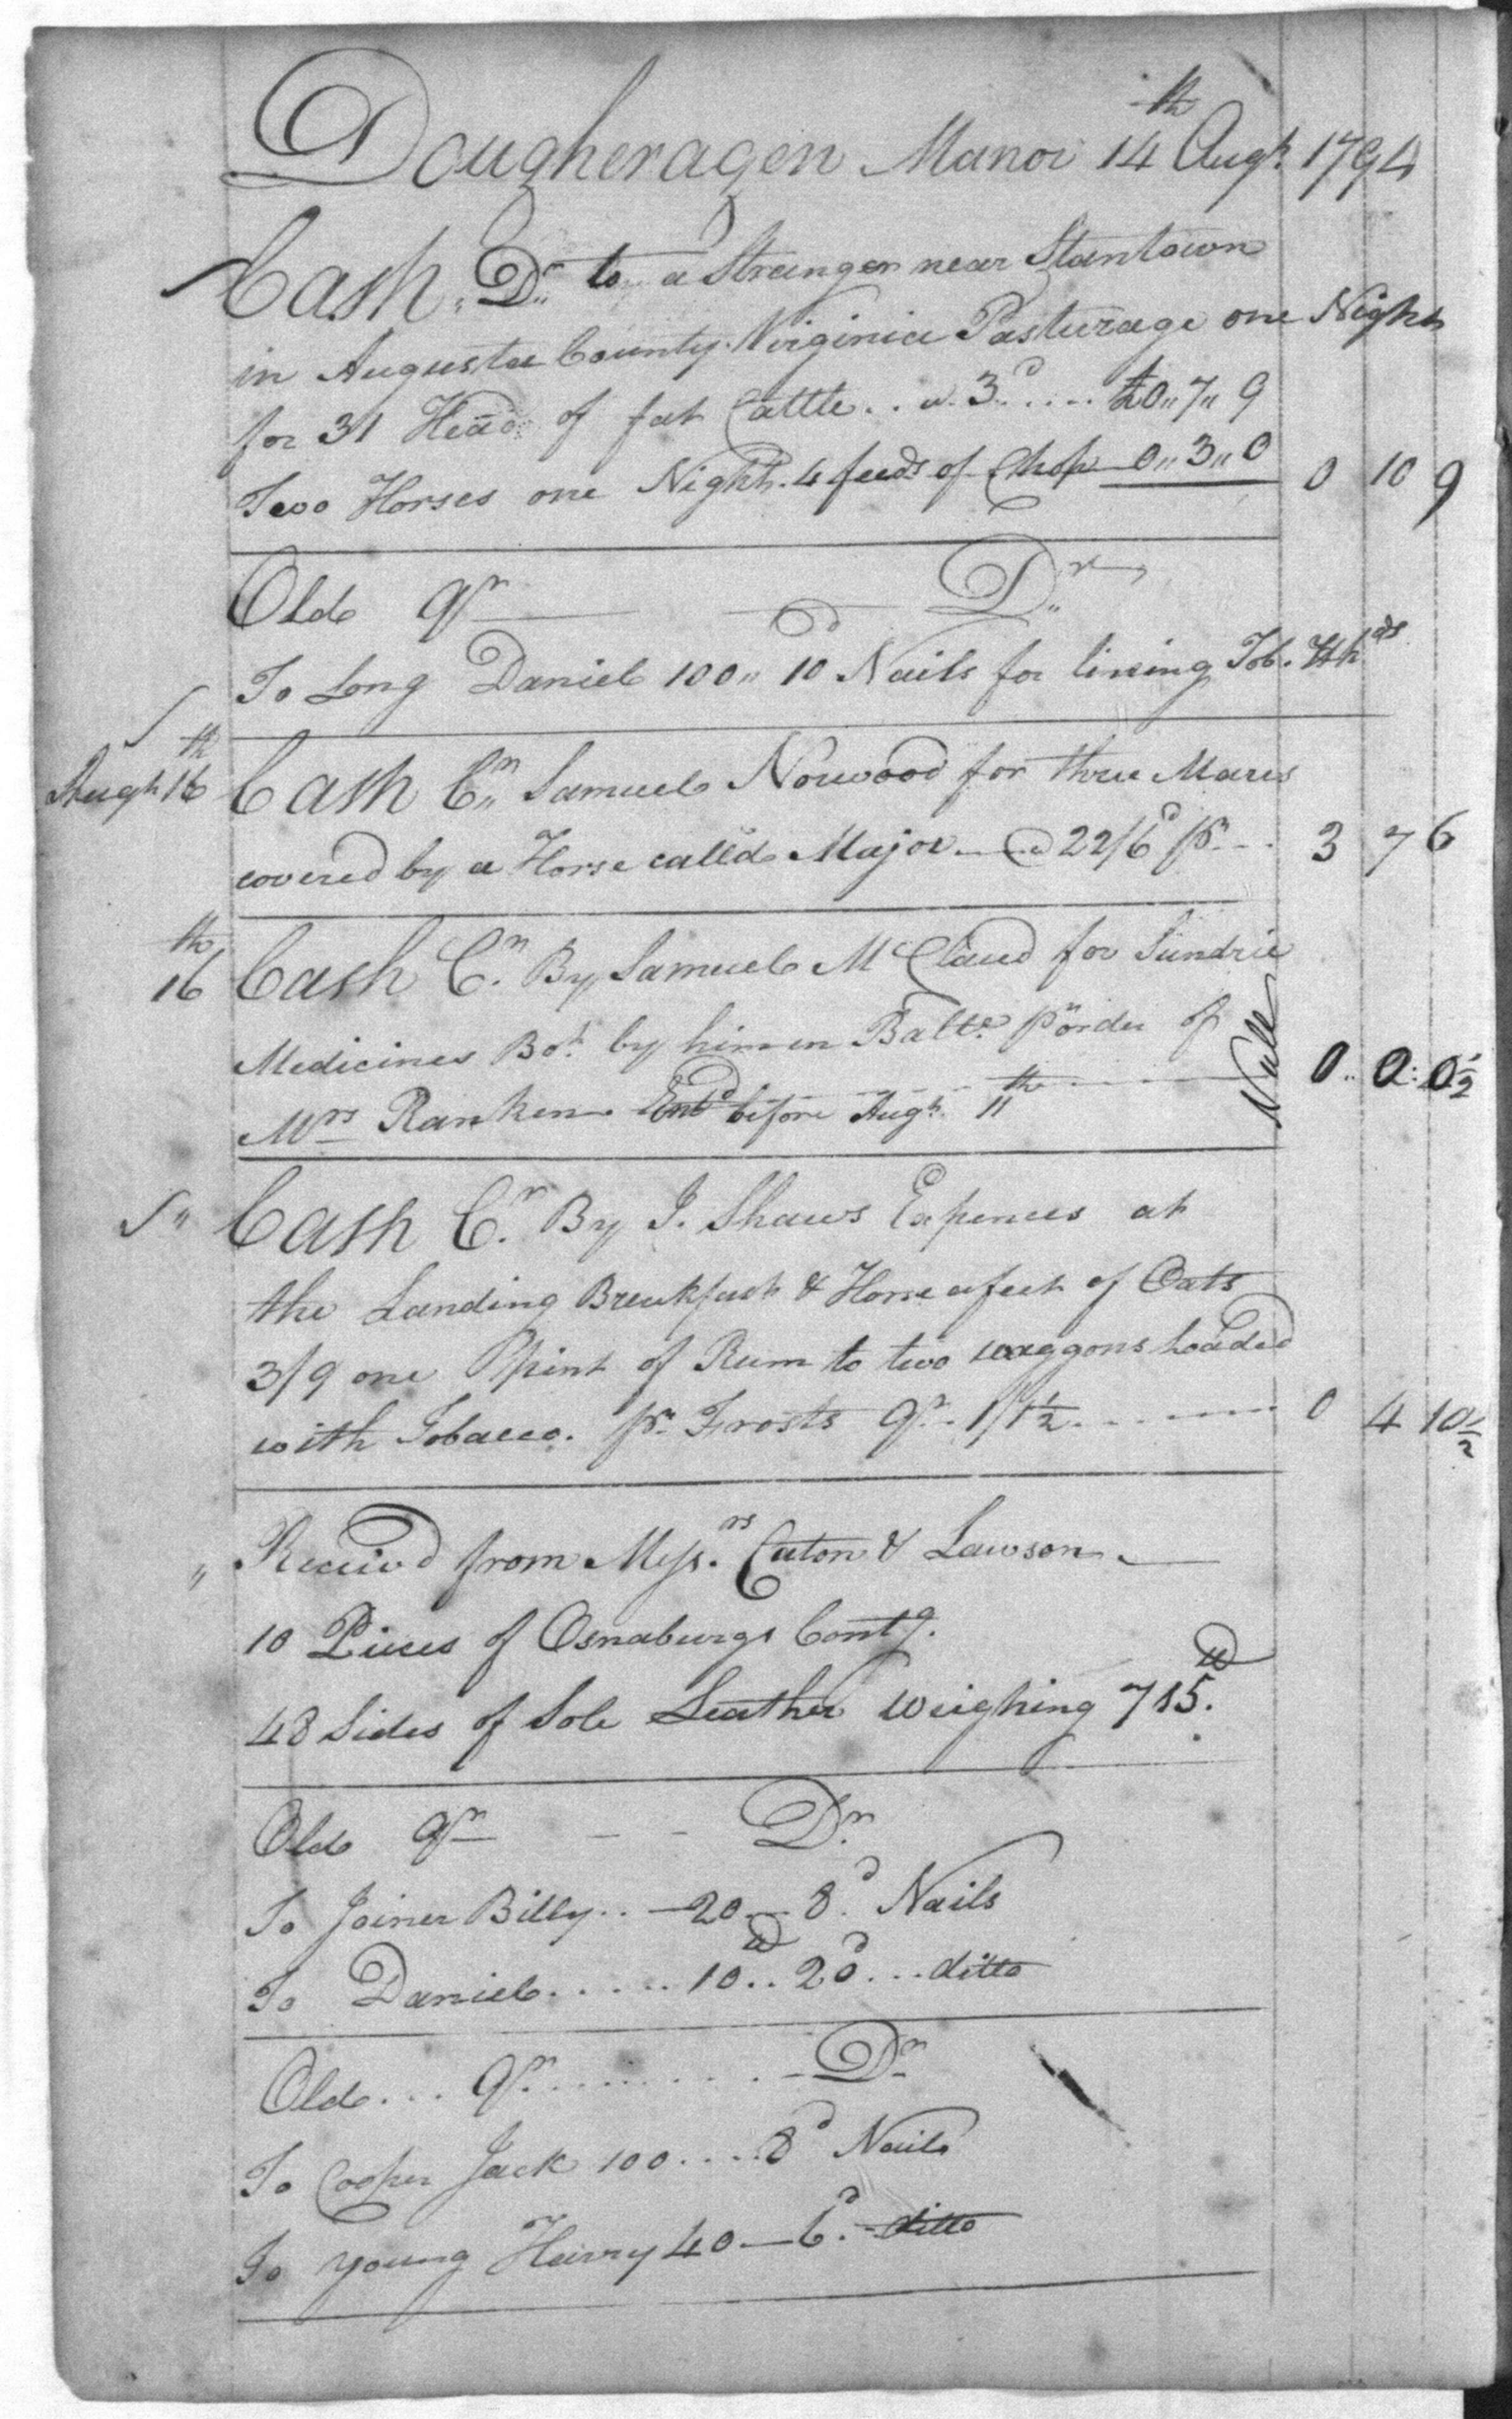 Dougheragen Manor 14th Augt. 1794
Cash, Dr. to a Stranger near Stantown
in Augusta County Virginia Pasturage one Night
for 31 Head of fat Cattle .. a 3d .... £0"7"9
Two Horses one Night. 4 feeds of Chop 0"3"0 0 10 9
Old Qr Dr.
To Long Daniel 100" 10d Nails for lining Tob. Hhds
Augt 16th Cash Cr. Samuel Norwood for three Mares
covered by a Horse calld Major @ 22/6d pr. 3 7 6
16th Cash Cr. By Samuel McClaud for Sundrie
Medicines Bot. by him in Balte. pr order of Null 0 .. 0 : 0 1/2
Mrs Ranken Entd before Augt. 11th
" Cash Cr. By J. Shaws Expences at
the Landing Breakfast & Horse afeet of Oats
3/9 one Ppint of Rum to two waggons Loaded
with Tobacco. pr. Frosts Qr. 1/1 1/2 0 4 10 1/2
" Receivd from Messrs. Caton & Lawson
10 Pieces of Osnaburgs Contg.
48 Sides of Sole Leather Weighing 785. lb
Old Qr - - Dr.
To Joiner Billy .. 20 8d Nails
To Daniel ..... 10 lb .. 20d ... ditto
Old ... Qr. ........ Dr.
To Cooper Jack 100 .... 8d Nails
To Young Harry 40 — 6d. - ditto